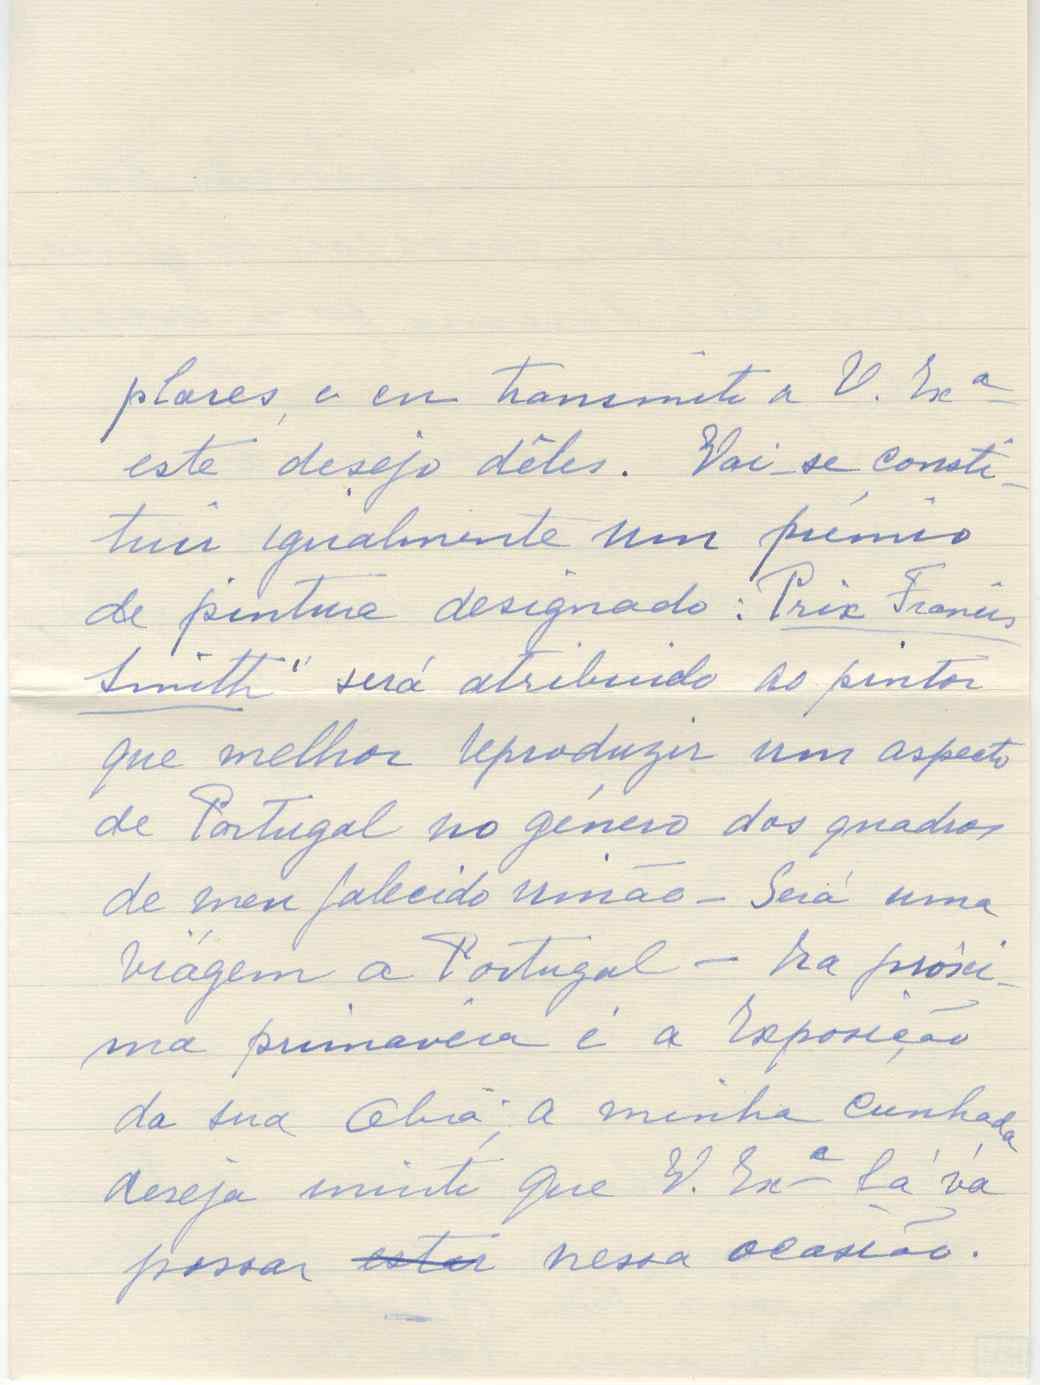 plares, e eu transmito a V. Exª
este desejo dêles. Vai-se consti-
tuir igualmente um prémio
de pintura designado: "Prix Francis
Smith" será atribuido ao pintor
que melhor reproduzir um aspecto
de Portugal no género dos quadros
de meu falecido irmão - Será uma
viàgem a Portugal - Na próxi-
ma primavera é a Exposição
da sua Obra, a minha cunhada
deseja muito que V. Exª lá vá
passar estar nessa ocasião.